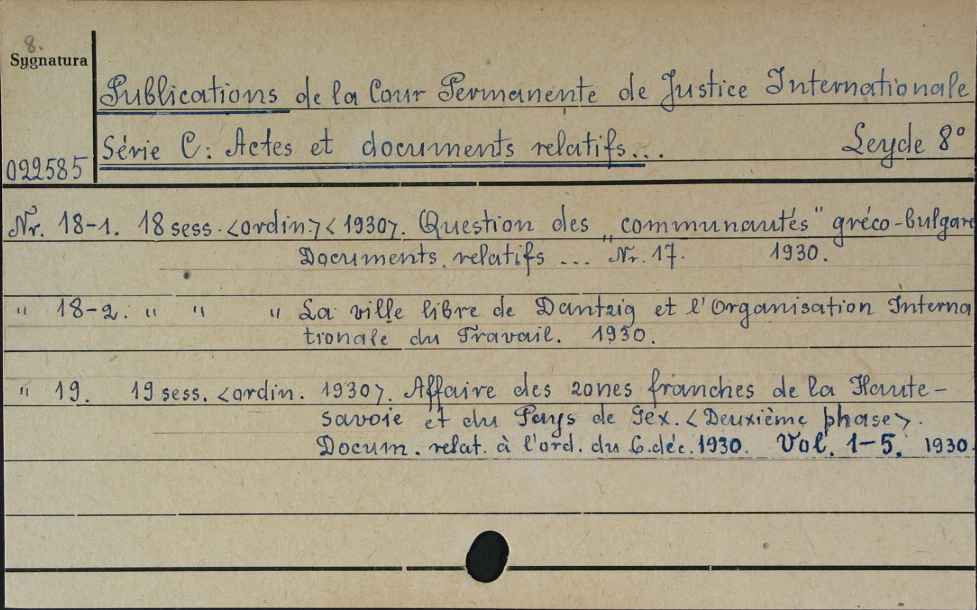 8.
Sygnatura
Publications de la Cour Permanente de Justice Internationale
Série C: Actes et documents relatifs... Leyde 8°
022585
Nr. 18-1. 18 sess. <ordin.> <1930>. Question des „communautés" gréco-bulgare
Documents relatifs ... Nr. 17. 1930.
" 18-2. " " " La ville libre de Dantzig et l'Organisation Interna
tionale du Travail. 1930.
" 19. 19 sess. <ordin. 1930>. Affaire des zones franches de la Haute-
Savoie et du Pays de Gex. <Deuxième phase>.
Docum. relat. à l'ord. du 6.déc. 1930. Vol. 1-5. 1930.